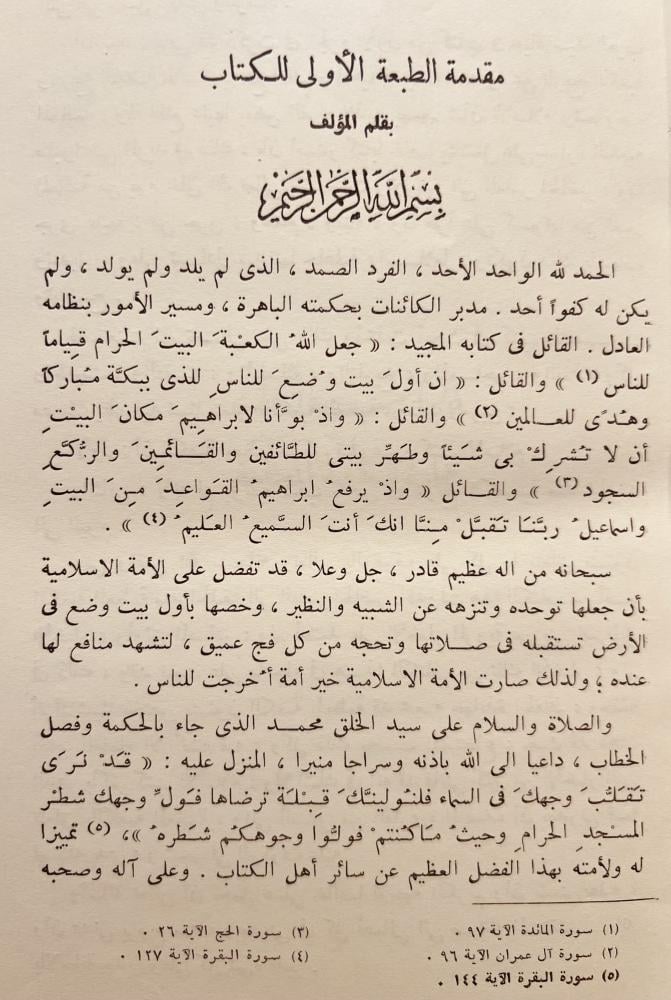 مقدمة الطبعة الأولى للكتاب
بقلم المؤلف
بسم الله الرحمن الرحيم
الحمد لله الواحد الأحد ، الفرد الصمد ، الذى لم يلد ولم يولد ، ولم
يكن له كفوأ أحد . مدبر الكائنات بحكمته الباهرة ، ومسير الأمور بنظامه
العادل . القائل فى كتابه المجيد : « جعل اللهُ الكعْبةَ البيتَ الحرام قِياماً
للناس (١) » والقائل : « ان أولَ بيت وُضعَ للناسِ للذى ببكَّة مُباركاً
وهُدًى للعالمين (٢) » والقائل : « واذْ بوَّأنا لابراهيمَ مكانَ البيْتِ
أن لا تُشرِكْ بى شَيئاً وطَهِّر بيتى للطَّائفين والقَائمينَ والرُّكَّعِ
السجود (٣) » والقائل « واذْ يرفعُ ابراهيمُ القَواعدَ مِنَ البيتِ
واسماعيلُ ربَّنَا تَقبَّلْ مِنَّا انكَ أنتَ السَّميعُ العَليمُ (٤) » .
سبحانه من اله عظيم قادر ، جل وعلا ، قد تفضل على الأمة الاسلامية
بأن جعلها توحده وتنزهه عن الشبيه والنظير ، وخصها بأول بيت وضع فى
الأرض تستقبله فى صلاتها وتحجه من كل فج عميق ، لتشهد منافع لها
عنده ؛ ولذلك صارت الأمة الاسلامية خير أمة أُخرجت للناس .
والصلاة والسلام على سيد الخلق محمد الذى جاء بالحكمة وفصل
الخطاب ، داعيا الى الله باذنه وسراجا منيرا ، المنزل عليه : « قَدْ نَرَى
تَقَلُّبَ وجهكَ فى السماء فلنُولينَّكَ قِبْلَة ترضاها فَولِّ وجهك شطْر
المسْجدِ الحرامِ وحيثُ مَاكُنتمْ فولُّوا وجوهكُم شَطرهُ »، (٥) تمييزا
له ولأمته بهذا الفضل العظيم عن سائر أهل الكتاب . وعلى آله وصحبه
(١) سورة المائدة الآية ٩٧ .
(٢) سورة آل عمران الآية ٩٦ .
(٣) سورة الحج الآية ٢٦ .
(٤) سورة البقرة الآية ١٢٧ .
(٥) سورة البقرة الآية ١٤٤ .